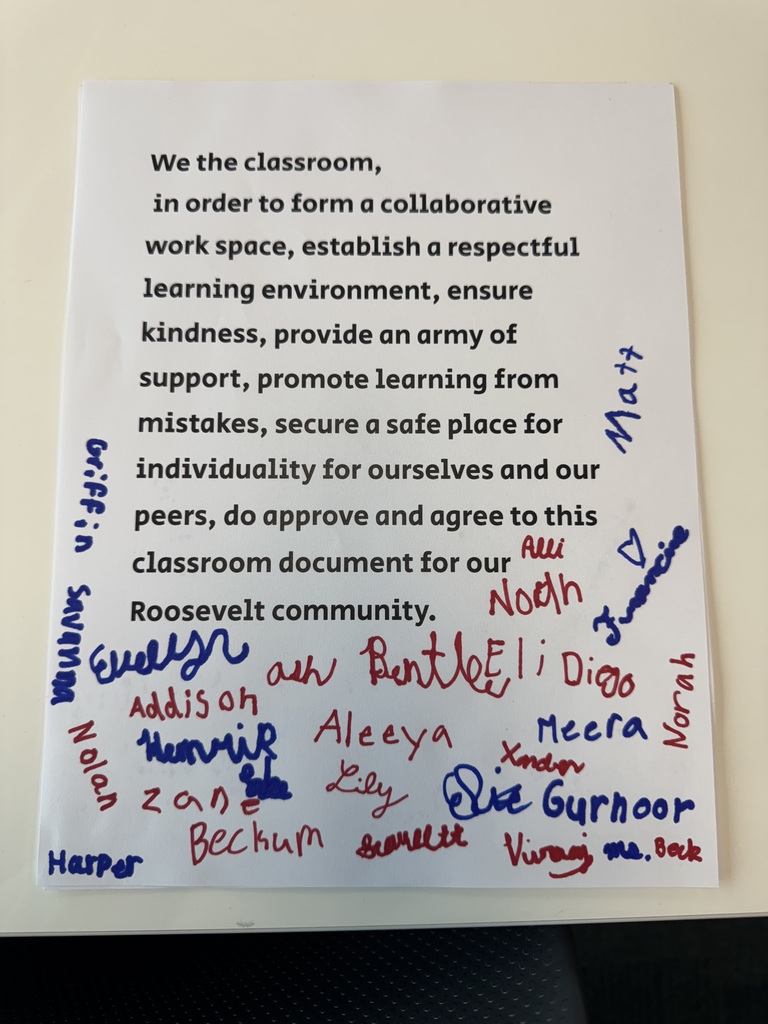 We the classroom,
in order to form a collaborative
work space, establish a respectful
learning environment, ensure
kindness, provide an army of
support, promote learning from
mistakes, secure a safe place for
individuality for ourselves and our
peers, do approve and agree to this
classroom document for our
Roosevelt community.
Matt
Griffin
Alli
Noah
Francine
Savanna
Evelyn
ash
Eli
Diego
Norah
Addison
Henrik
Aleeya
Meera
Nolan
Zane
Lily
Xander
Gurnoor
Beckum
Scarlett
Viraaj
ms. Beck
Harper